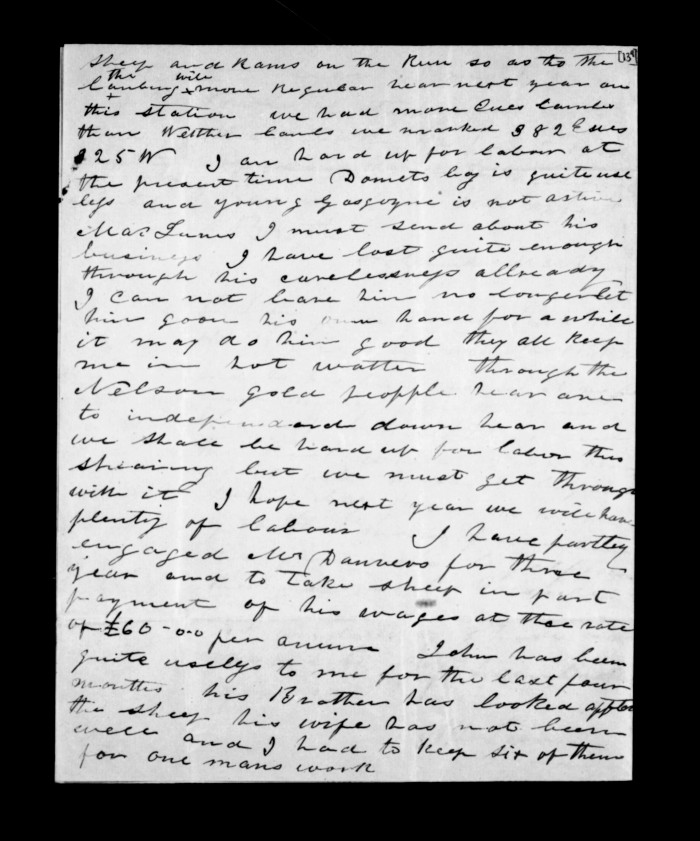 [13]
sheep and Rams on the Run so as to the
the will
lambing more Regular hear next year on
this station we had more Ewes lambs
than Weither lambs we marked 382 Ewes
325 W I am hard up for labour at
the present time Domets leg is quite use
less and young Gasgoyne is not active
Mac I must send about his
business I have lost quite enough
through his carelessness allready
I can not leave him no longer let
him goon his own hand for a while
it may do him good they all keep
me in hot watter through the
Nelson gold peopple hear are
to independard down hear and
we shall be hard up for labor this
shearing but we must get through
with it I hope next year we will have
plenty of labour I have partley
engaged Mr Danvers for three
year and to take sheep in part
payment of his wages at thee rate
of £60-0-0 per anum John has been
quite useless to me for the last four
months his Brother has looked after
the sheep his wife has not been
well and I had to keep six of them
for one mans work